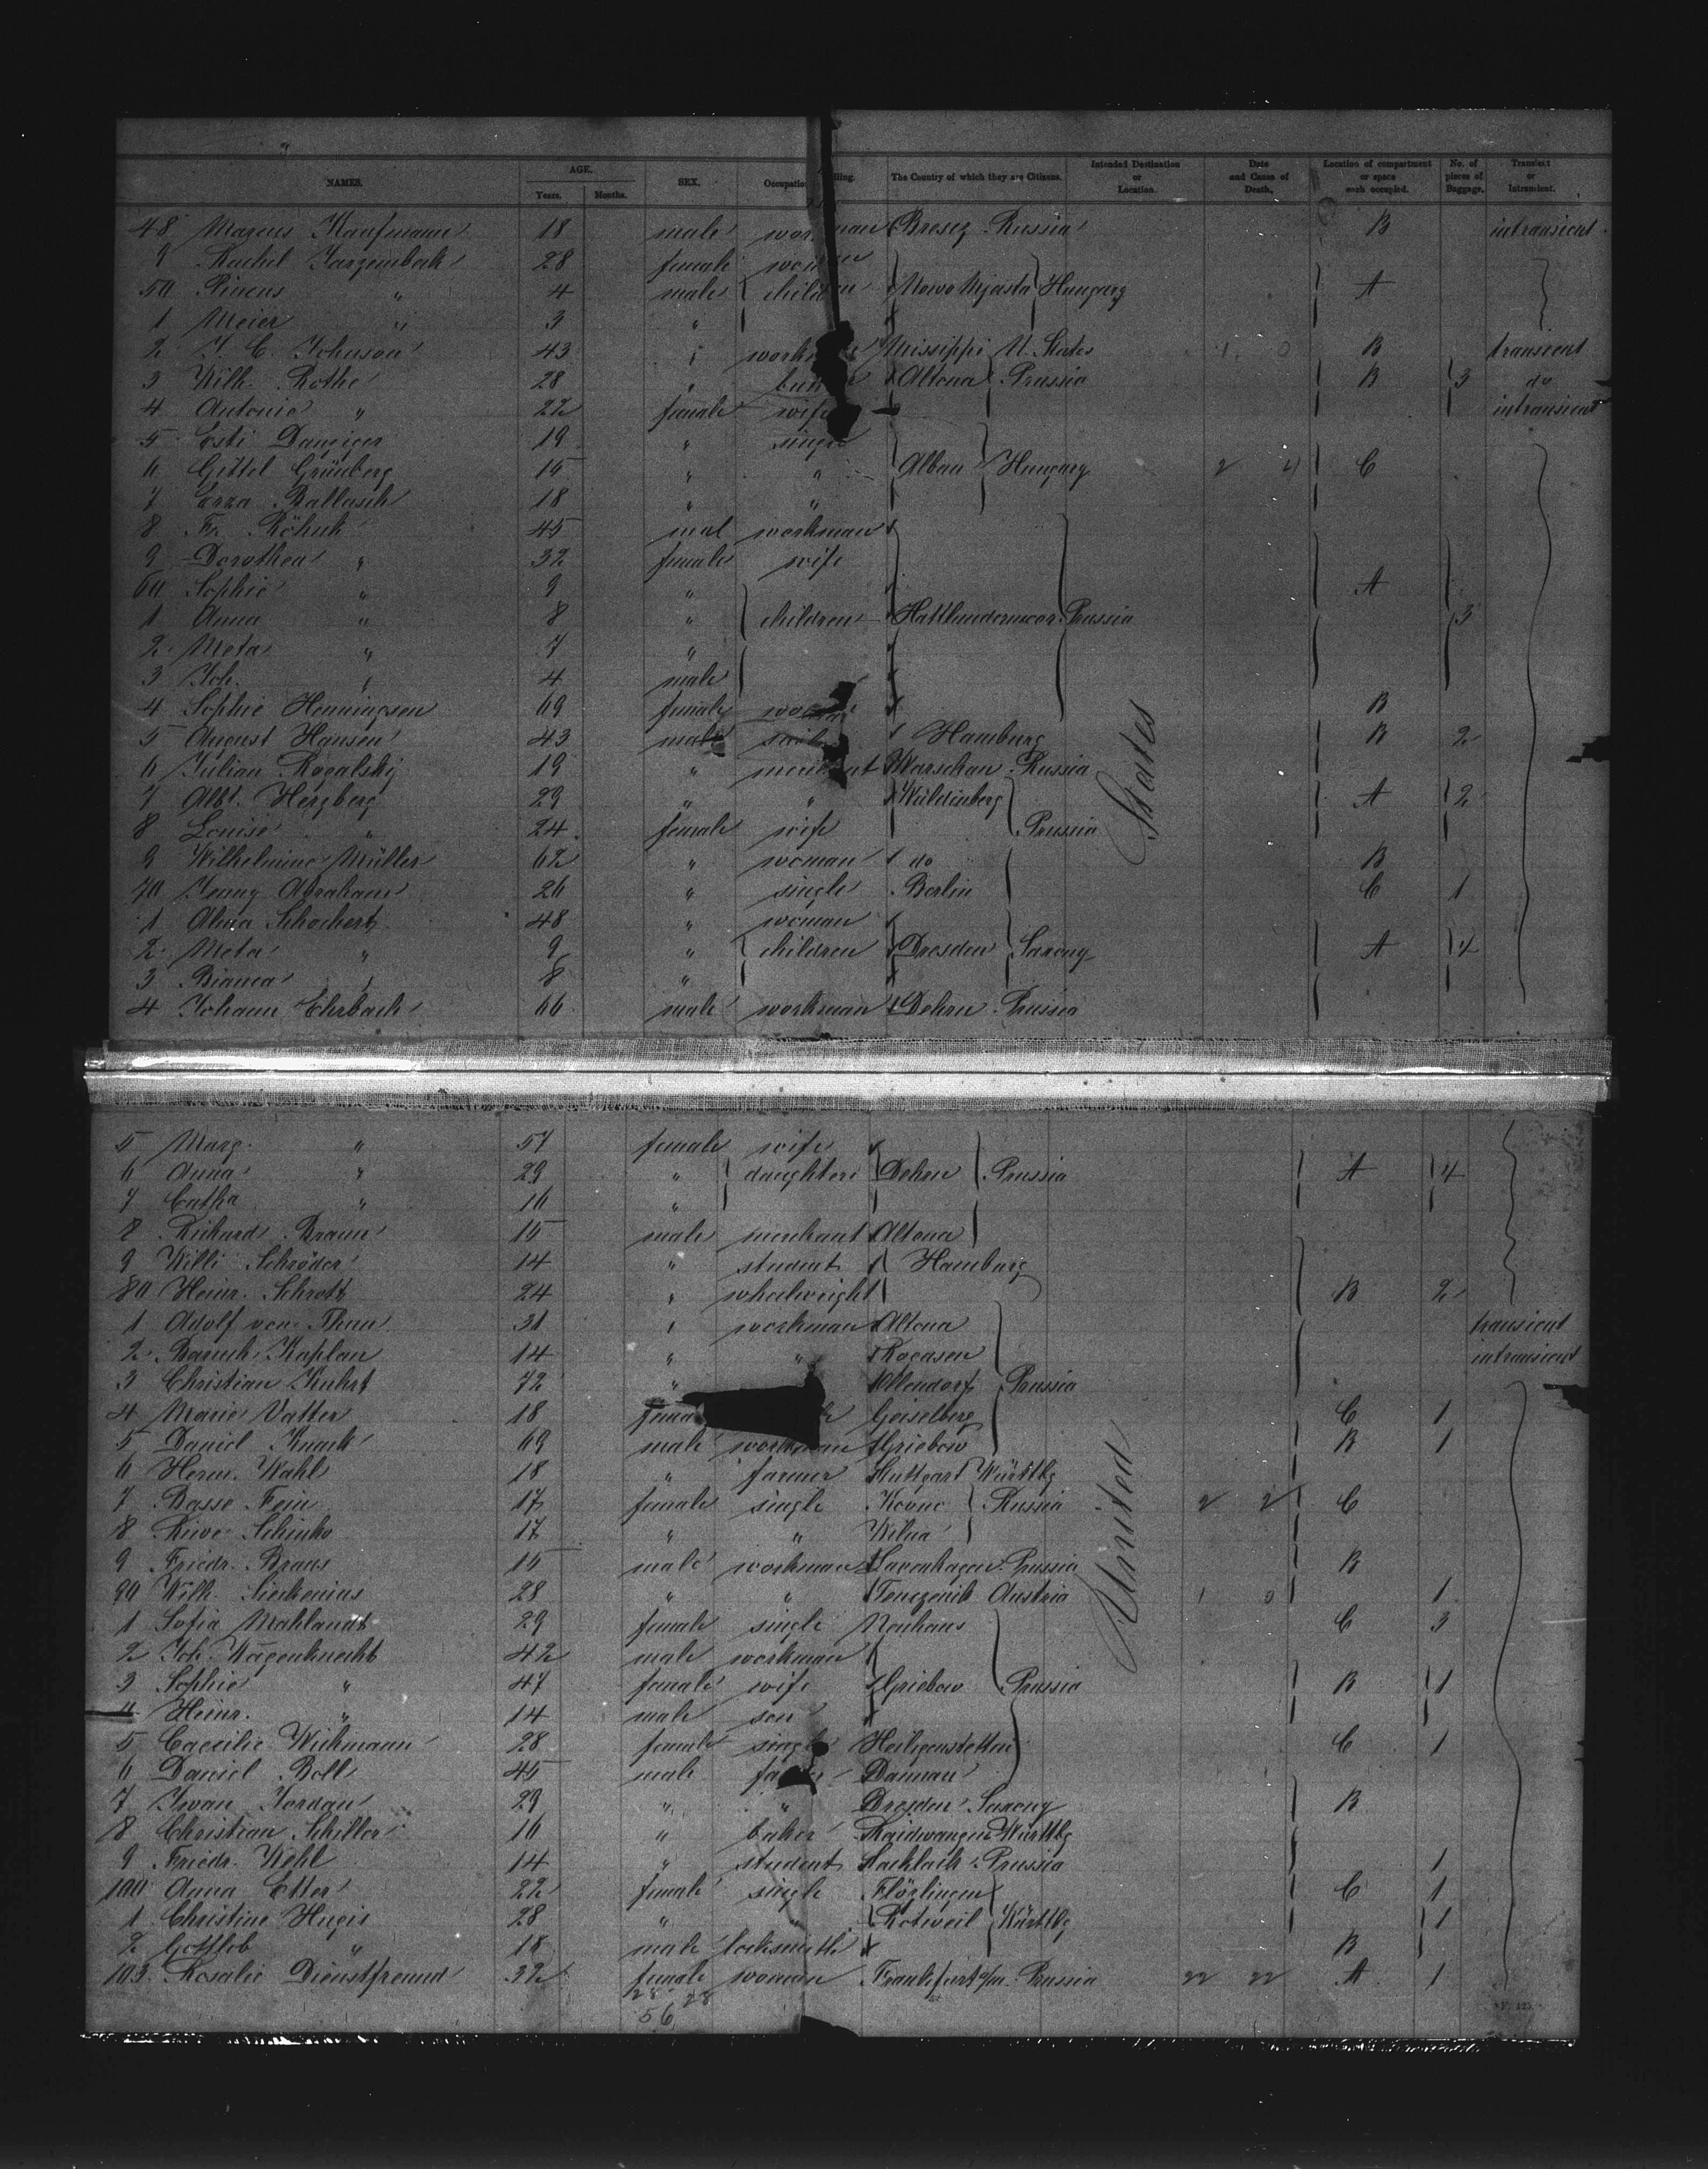 NAMES. AGE. Years. Months. SEX. The Country of which they are Citizens. Intended Destination or Location. Date and Cause of Death. Location of compartment or space each occupied. No. of pieces of Baggage. Transient or Intransient.
48 Marcus Kaufmann 18 male Russia B intransient
9 Rachel 28 female
50 Pincus " 4 male children Hungary A
1 Meier " 3 "
2 J. C. Johnson 43 " Missippi U. States B transient
3 Wilh. Rothe 28 " Altona Prussia B 3 do
4 Antonie " 22 female wife intransient
5 Esti Danziger 19 " single
6 Gittel Grünberg 15 " " Alban Hungary 2 4 C
7 Ballasch 18 " "
8 Fr. 45 mal workman
9 Dorothea " 32 female wife
60 Sophie " 9 " A
1 Anna " 8 " children Prussia 3
2 Meta " 7 "
3 Joh. " 4 male
4 Sophie Henningsen 69 female B
5 August Hansen 43 male Hamburg B 2
6 Julian Rogalsky 19 " Warschau Russia
7 Albt. Herzberg 29 " " A 2
8 Louise " 24 female wife Prussia
9 Wilhelmine Müller 62 " woman do B
70 Jenny Abraham 26 " single Berlin C 1
1 Alma Schochert 48 " woman
2 Meta " 9 " children Dresden Saxony A 4
3 Bianca " 8 "
4 Johann Ehrbach 66 male workman Dehrn Prussia
States
5 Marg. " 57 female wife
6 Anna " 29 " daughters Dehrn Prussia A 4
7 Catha " 16 "
8 Richard Braun 15 male merchant Altona
9 Willi Schröder 14 " student Hamburg
80 Heinr. Schrott 24 " wheelwright B 2
1 Adolf von Thun 31 " workman Altona transient
2 Baruch Kaplan 14 " " Rogasen intransient
3 Christian Kuhrt 72 " Prussia
4 Marie Vatter 18 Geiselberg C 1
5 Daniel Knack 69 male workman Griebow B 1
6 Herm. Wahl 18 " farmer Stuttgart Württbg
7 Basse Fein 17 female single Kovno Russia 2 2 C
8 Riwe Schinko 17 " " Wilna
9 Friedr. Braus 15 male workman Prussia B
90 Wilh. 28 " " Austria 1 0 1
1 Sofia Mahlandt 29 female single Neuhaus C 3
2 Joh. Wagenknecht 42 male workman
3 Sophie " 47 female wife Griebow Prussia B 1
4 Heinr. " 14 male son
5 Caecilie Wichmann 28 female single Heiligenstetten C 1
6 Daniel Boll 45 male
7 Iwan Jordan 29 " " Dresden Saxony B
8 Christian Schiller 16 " baker Raidwangen Württbg
9 Friedr. Kehl 14 " student Prussia 1
100 Anna Etter 22 female single Flözlingen C 1
1 Christine Hugis 28 " " Rotweil Württbg 1
2 Gottlob " 18 male locksmith B
103 Rosalie Dienstfreund 32 female woman Frankfurt a/m. Prussia 22 22 A 1
United
28 28
56